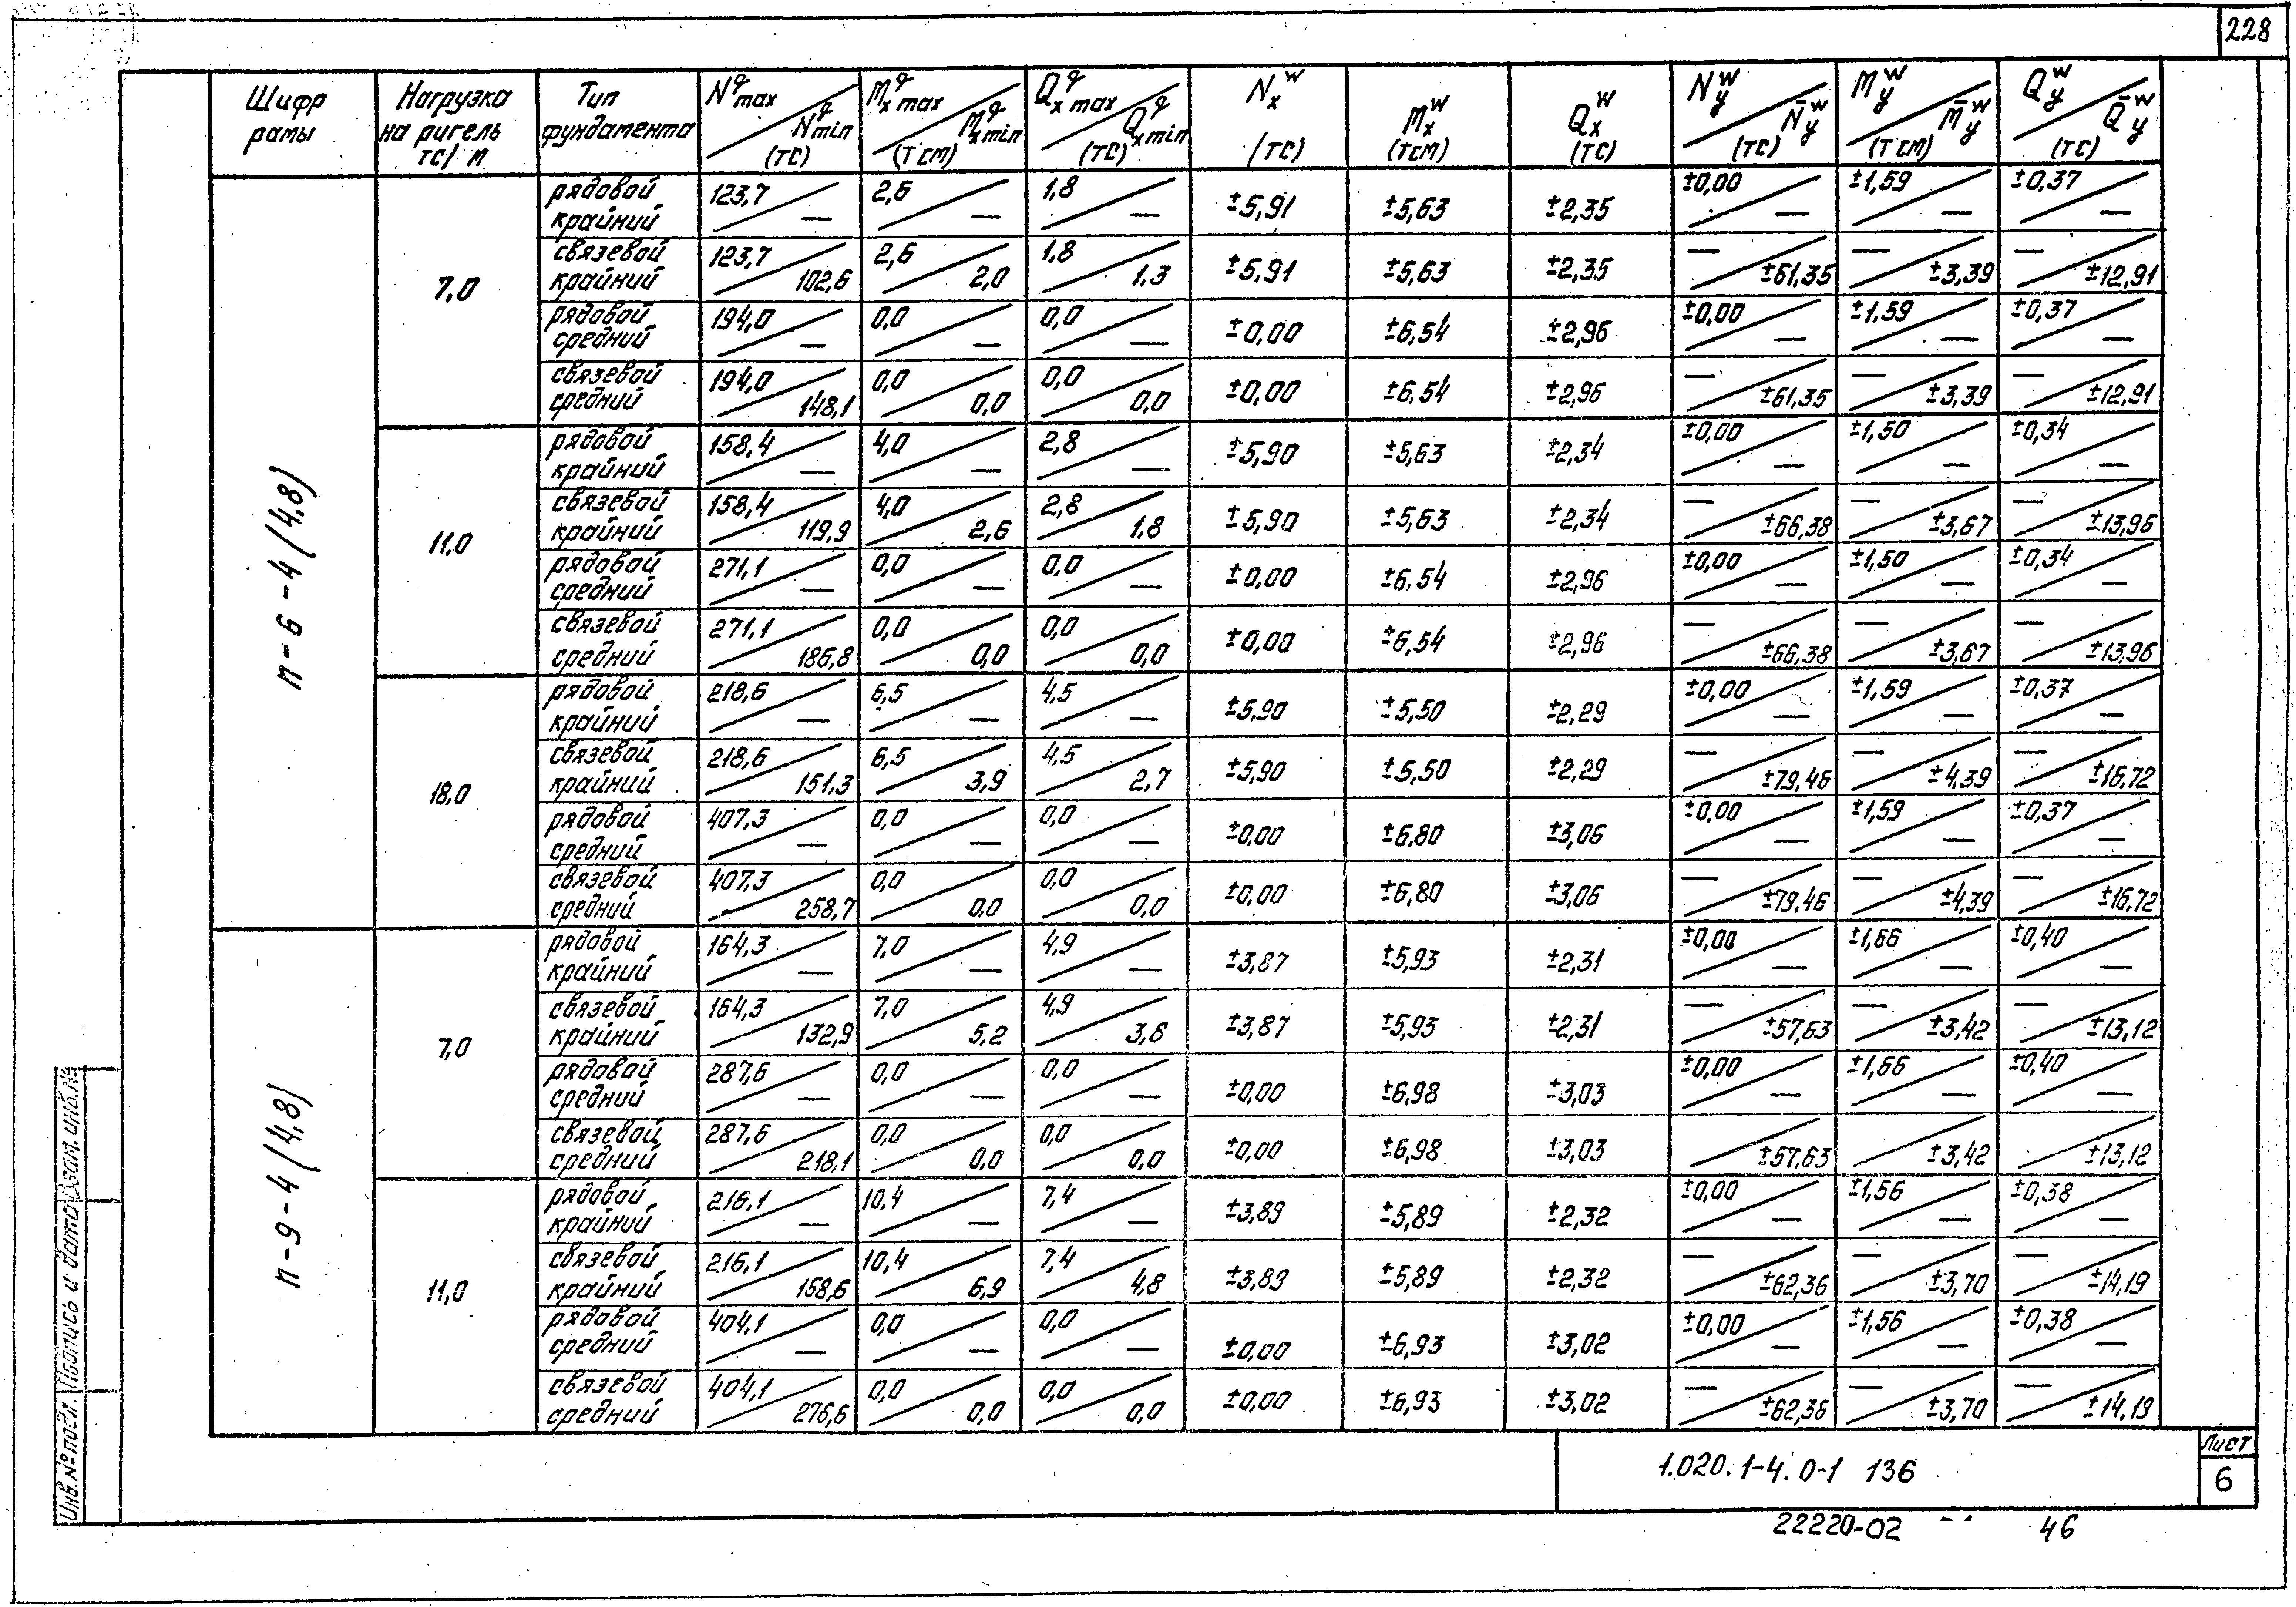 228
Шифр рамы | Нагрузка на ригель тс/м | Тип фундамента | N^q max / N^q min (тс) | M^q x max / M^q x min (тсм) | Q^q x max / Q^q x min (тс) | N^w x (тс) | M^w x (тсм) | Q^w x (тс) | N^w y / N̄^w y (тс) | M^w y / M̄^w y (тсм) | Q^w y / Q̄^w y (тс)
п-6-4(4.8)
7,0
рядовой крайний | 123,7 / — | 2,6 / — | 1,8 / — | ±5,91 | ±5,63 | ±2,35 | ±0,00 / — | ±1,59 / — | ±0,37 / —
связевой крайний | 123,7 / 102,6 | 2,6 / 2,0 | 1.8 / 1.3 | ±5,91 | ±5,63 | ±2,35 | — / ±61,35 | — / ±3,39 | — / ±12,91
рядовой средний | 194,0 / — | 0,0 / — | 0,0 / — | ±0,00 | ±6,54 | ±2,96 | ±0,00 / — | ±1,59 / — | ±0,37 / —
связевой средний | 194,0 / 148,1 | 0,0 / 0,0 | 0,0 / 0,0 | ±0,00 | ±6,54 | ±2,96 | — / ±61,35 | — / ±3,39 | — / ±12,91
11,0
рядовой крайний | 158,4 / — | 4,0 / — | 2,8 / — | ±5,90 | ±5,63 | ±2,34 | ±0,00 / — | ±1,50 / — | ±0,34 / —
связевой крайний | 158,4 / 119,9 | 4,0 / 2,6 | 2,8 / 1,8 | ±5,90 | ±5,63 | ±2,34 | — / ±66,38 | — / ±3,67 | — / ±13,96
рядовой средний | 271,1 / — | 0,0 / — | 0,0 / — | ±0,00 | ±6,54 | ±2,96 | ±0,00 / — | ±1,50 / — | ±0,34 / —
связевой средний | 271,1 / 186,8 | 0,0 / 0,0 | 0,0 / 0,0 | ±0,00 | ±6,54 | ±2,96 | — / ±66,38 | — / ±3,67 | — / ±13,96
18,0
рядовой крайний | 218,6 / — | 6,5 / — | 4,5 / — | ±5,90 | ±5,50 | ±2,29 | ±0,00 / — | ±1,59 / — | ±0,37 / —
связевой крайний | 218,6 / 151,3 | 6,5 / 3,9 | 4,5 / 2,7 | ±5,90 | ±5,50 | ±2,29 | — / ±79,46 | — / ±4,39 | — / ±16,72
рядовой средний | 407,3 / — | 0,0 / — | 0,0 / — | ±0,00 | ±6,80 | ±3,06 | ±0,00 / — | ±1,59 / — | ±0,37 / —
связевой средний | 407,3 / 258,7 | 0,0 / 0,0 | 0,0 / 0,0 | ±0,00 | ±6,80 | ±3,06 | — / ±79,46 | — / ±4,39 | — / ±16,72
п-9-4(4,8)
7,0
рядовой крайний | 164,3 / — | 7,0 / — | 4,9 / — | ±3,87 | ±5,93 | ±2,31 | ±0,00 / — | ±1,66 / — | ±0,40 / —
связевой крайний | 164,3 / 132,9 | 7,0 / 5,2 | 4,9 / 3,6 | ±3,87 | ±5,93 | ±2,31 | — / ±57,63 | — / ±3,42 | — / ±13,12
рядовой средний | 287,6 / — | 0,0 / — | 0,0 / — | ±0,00 | ±6,98 | ±3,03 | ±0,00 / — | ±1,66 / — | ±0,40 / —
связевой средний | 287,6 / 218,1 | 0,0 / 0,0 | 0,0 / 0,0 | ±0,00 | ±6,98 | ±3,03 | / ±57,63 | / ±3,42 | / ±13,12
11,0
рядовой крайний | 216,1 / — | 10,4 / — | 7,4 / — | ±3,89 | ±5,89 | ±2,32 | ±0,00 / — | ±1,56 / — | ±0,38 / —
связевой крайний | 216,1 / 158,6 | 10,4 / 6,9 | 7,4 / 4,8 | ±3,89 | ±5,89 | ±2,32 | — / ±62,36 | — / ±3,70 | — / ±14,19
рядовой средний | 404,1 / — | 0,0 / — | 0,0 / — | ±0,00 | ±6,93 | ±3,02 | ±0,00 / — | ±1,56 / — | ±0,38 / —
связевой средний | 404,1 / 276,6 | 0,0 / 0,0 | 0,0 / 0,0 | ±0,00 | ±6,93 | ±3,02 | — / ±62,36 | — / ±3,70 | — / ±14,19
Инв.№подл. Подпись и дата Взам.инв.№
1.020.1-4.0-1 136
Лист
6
22220-02 46